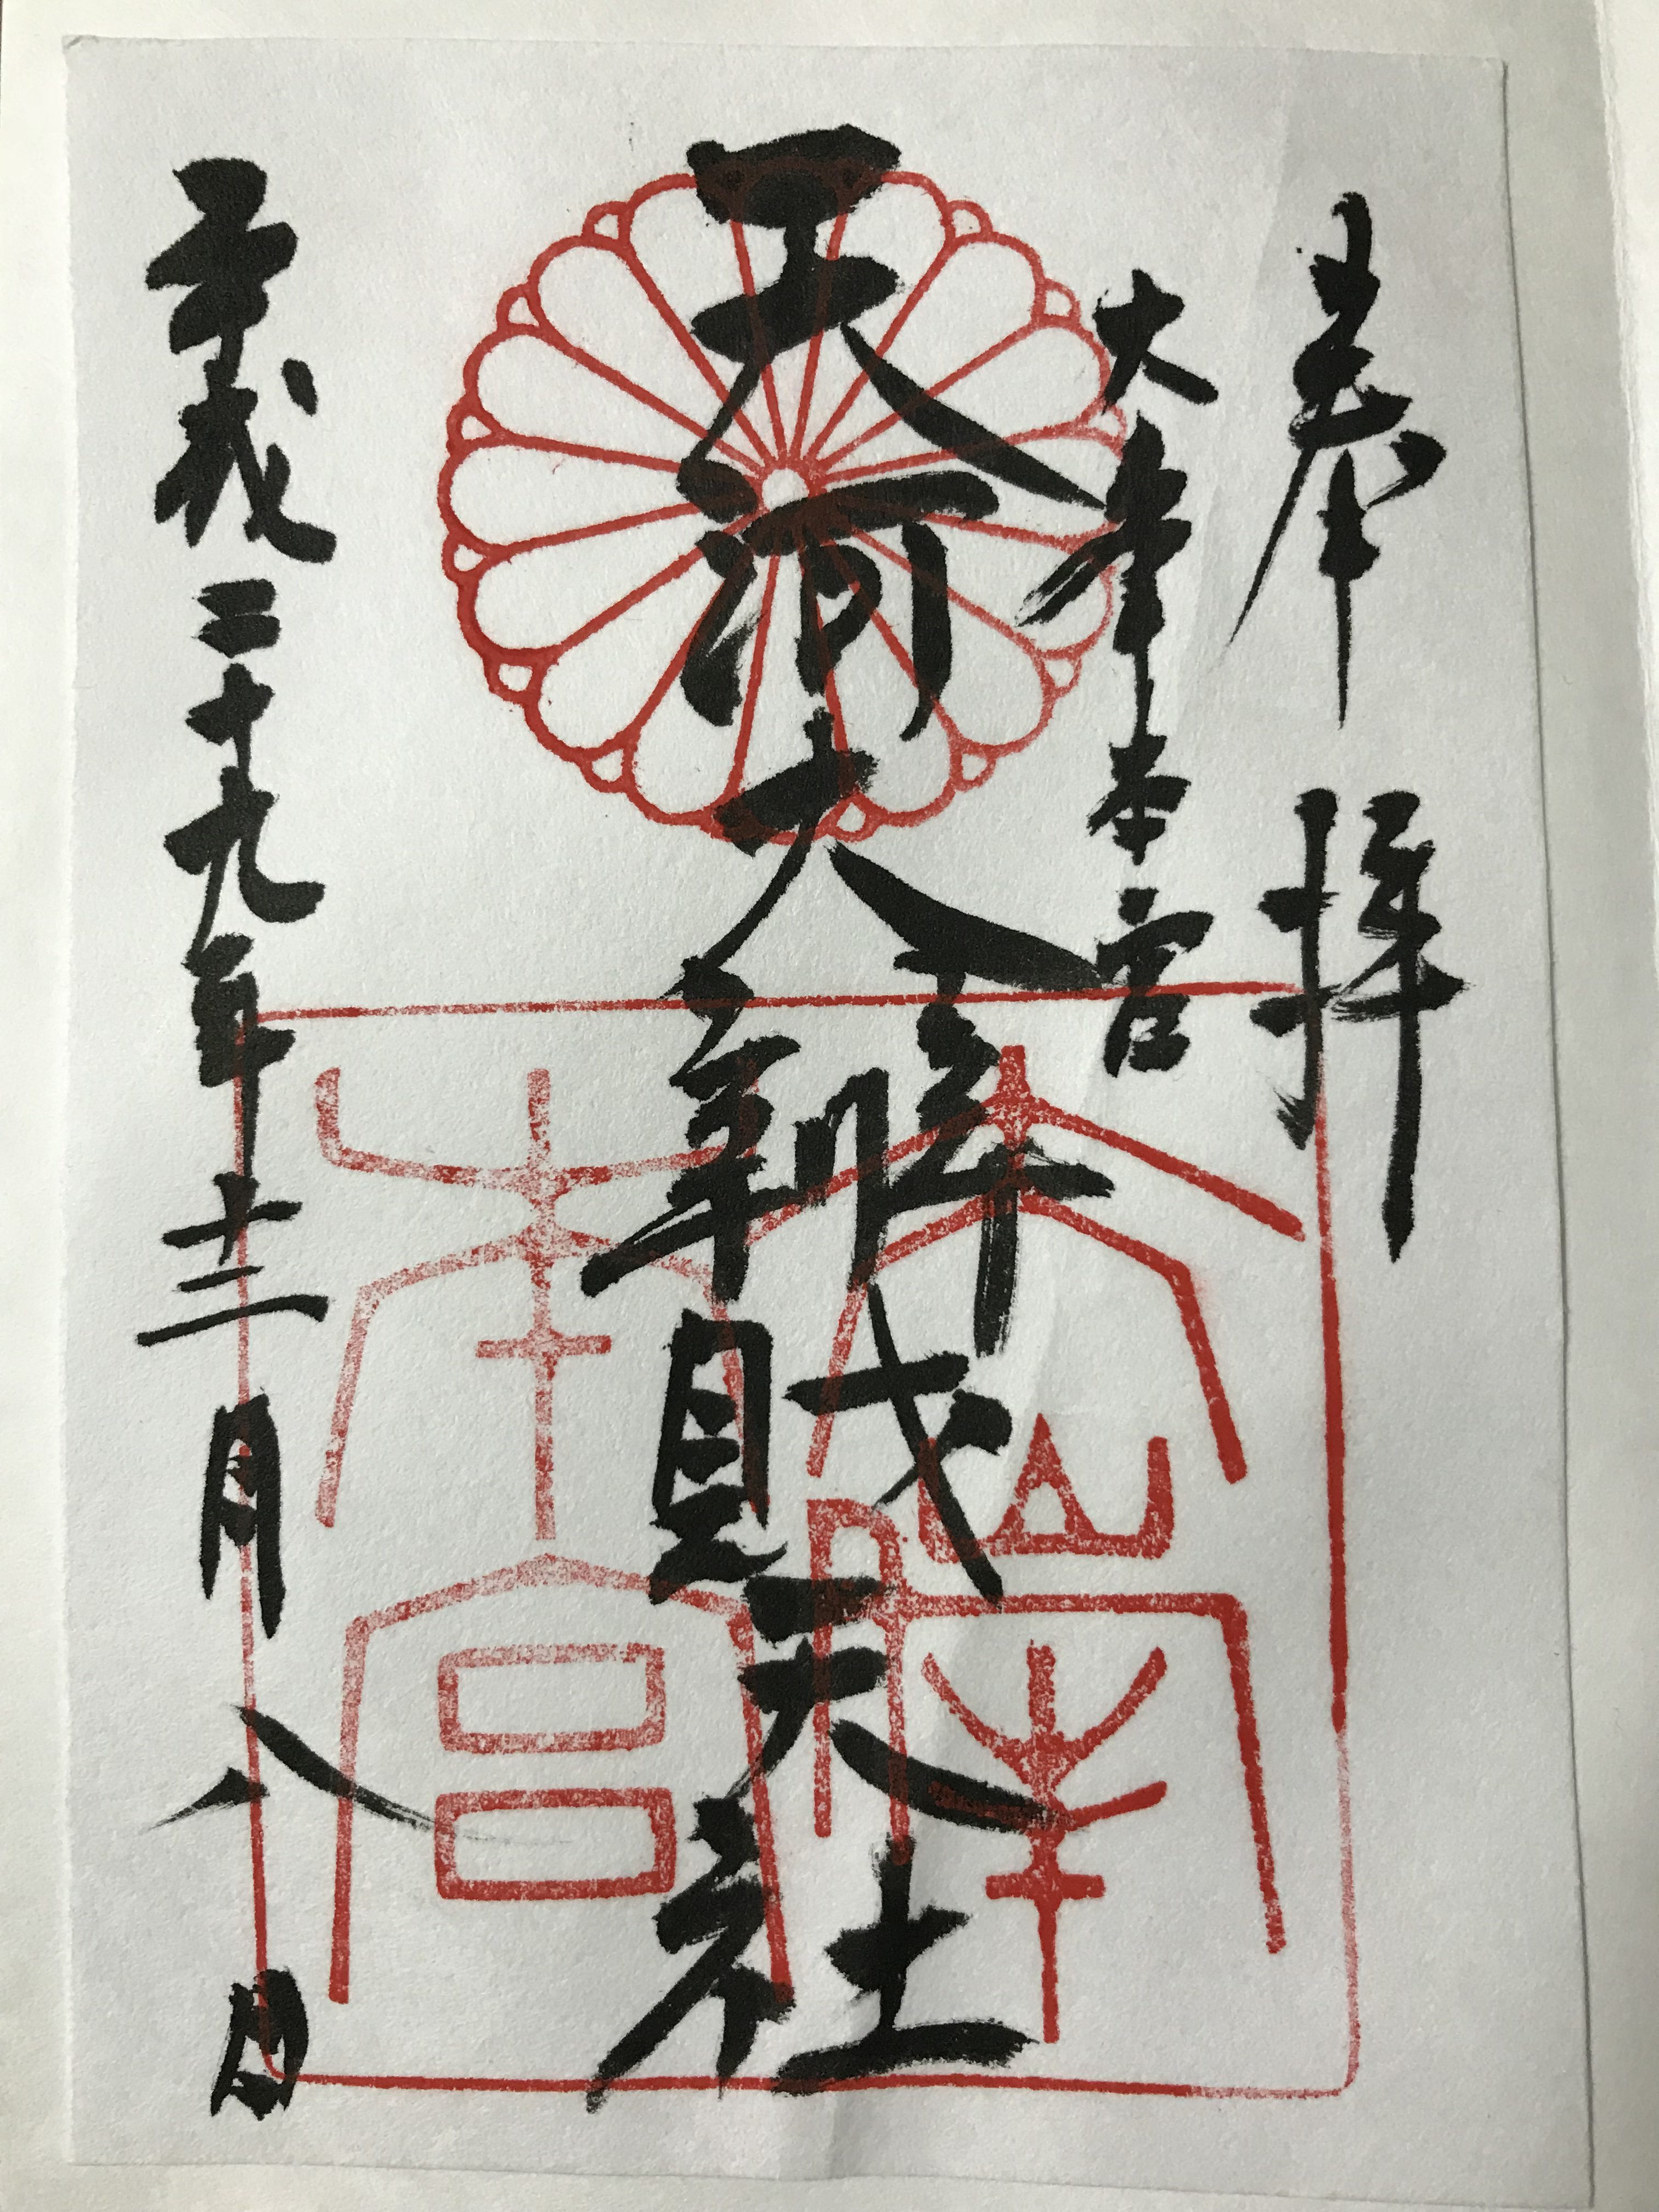 奉拝
大峯本宮
天河大辨財天社
平成二十九年十二月八日